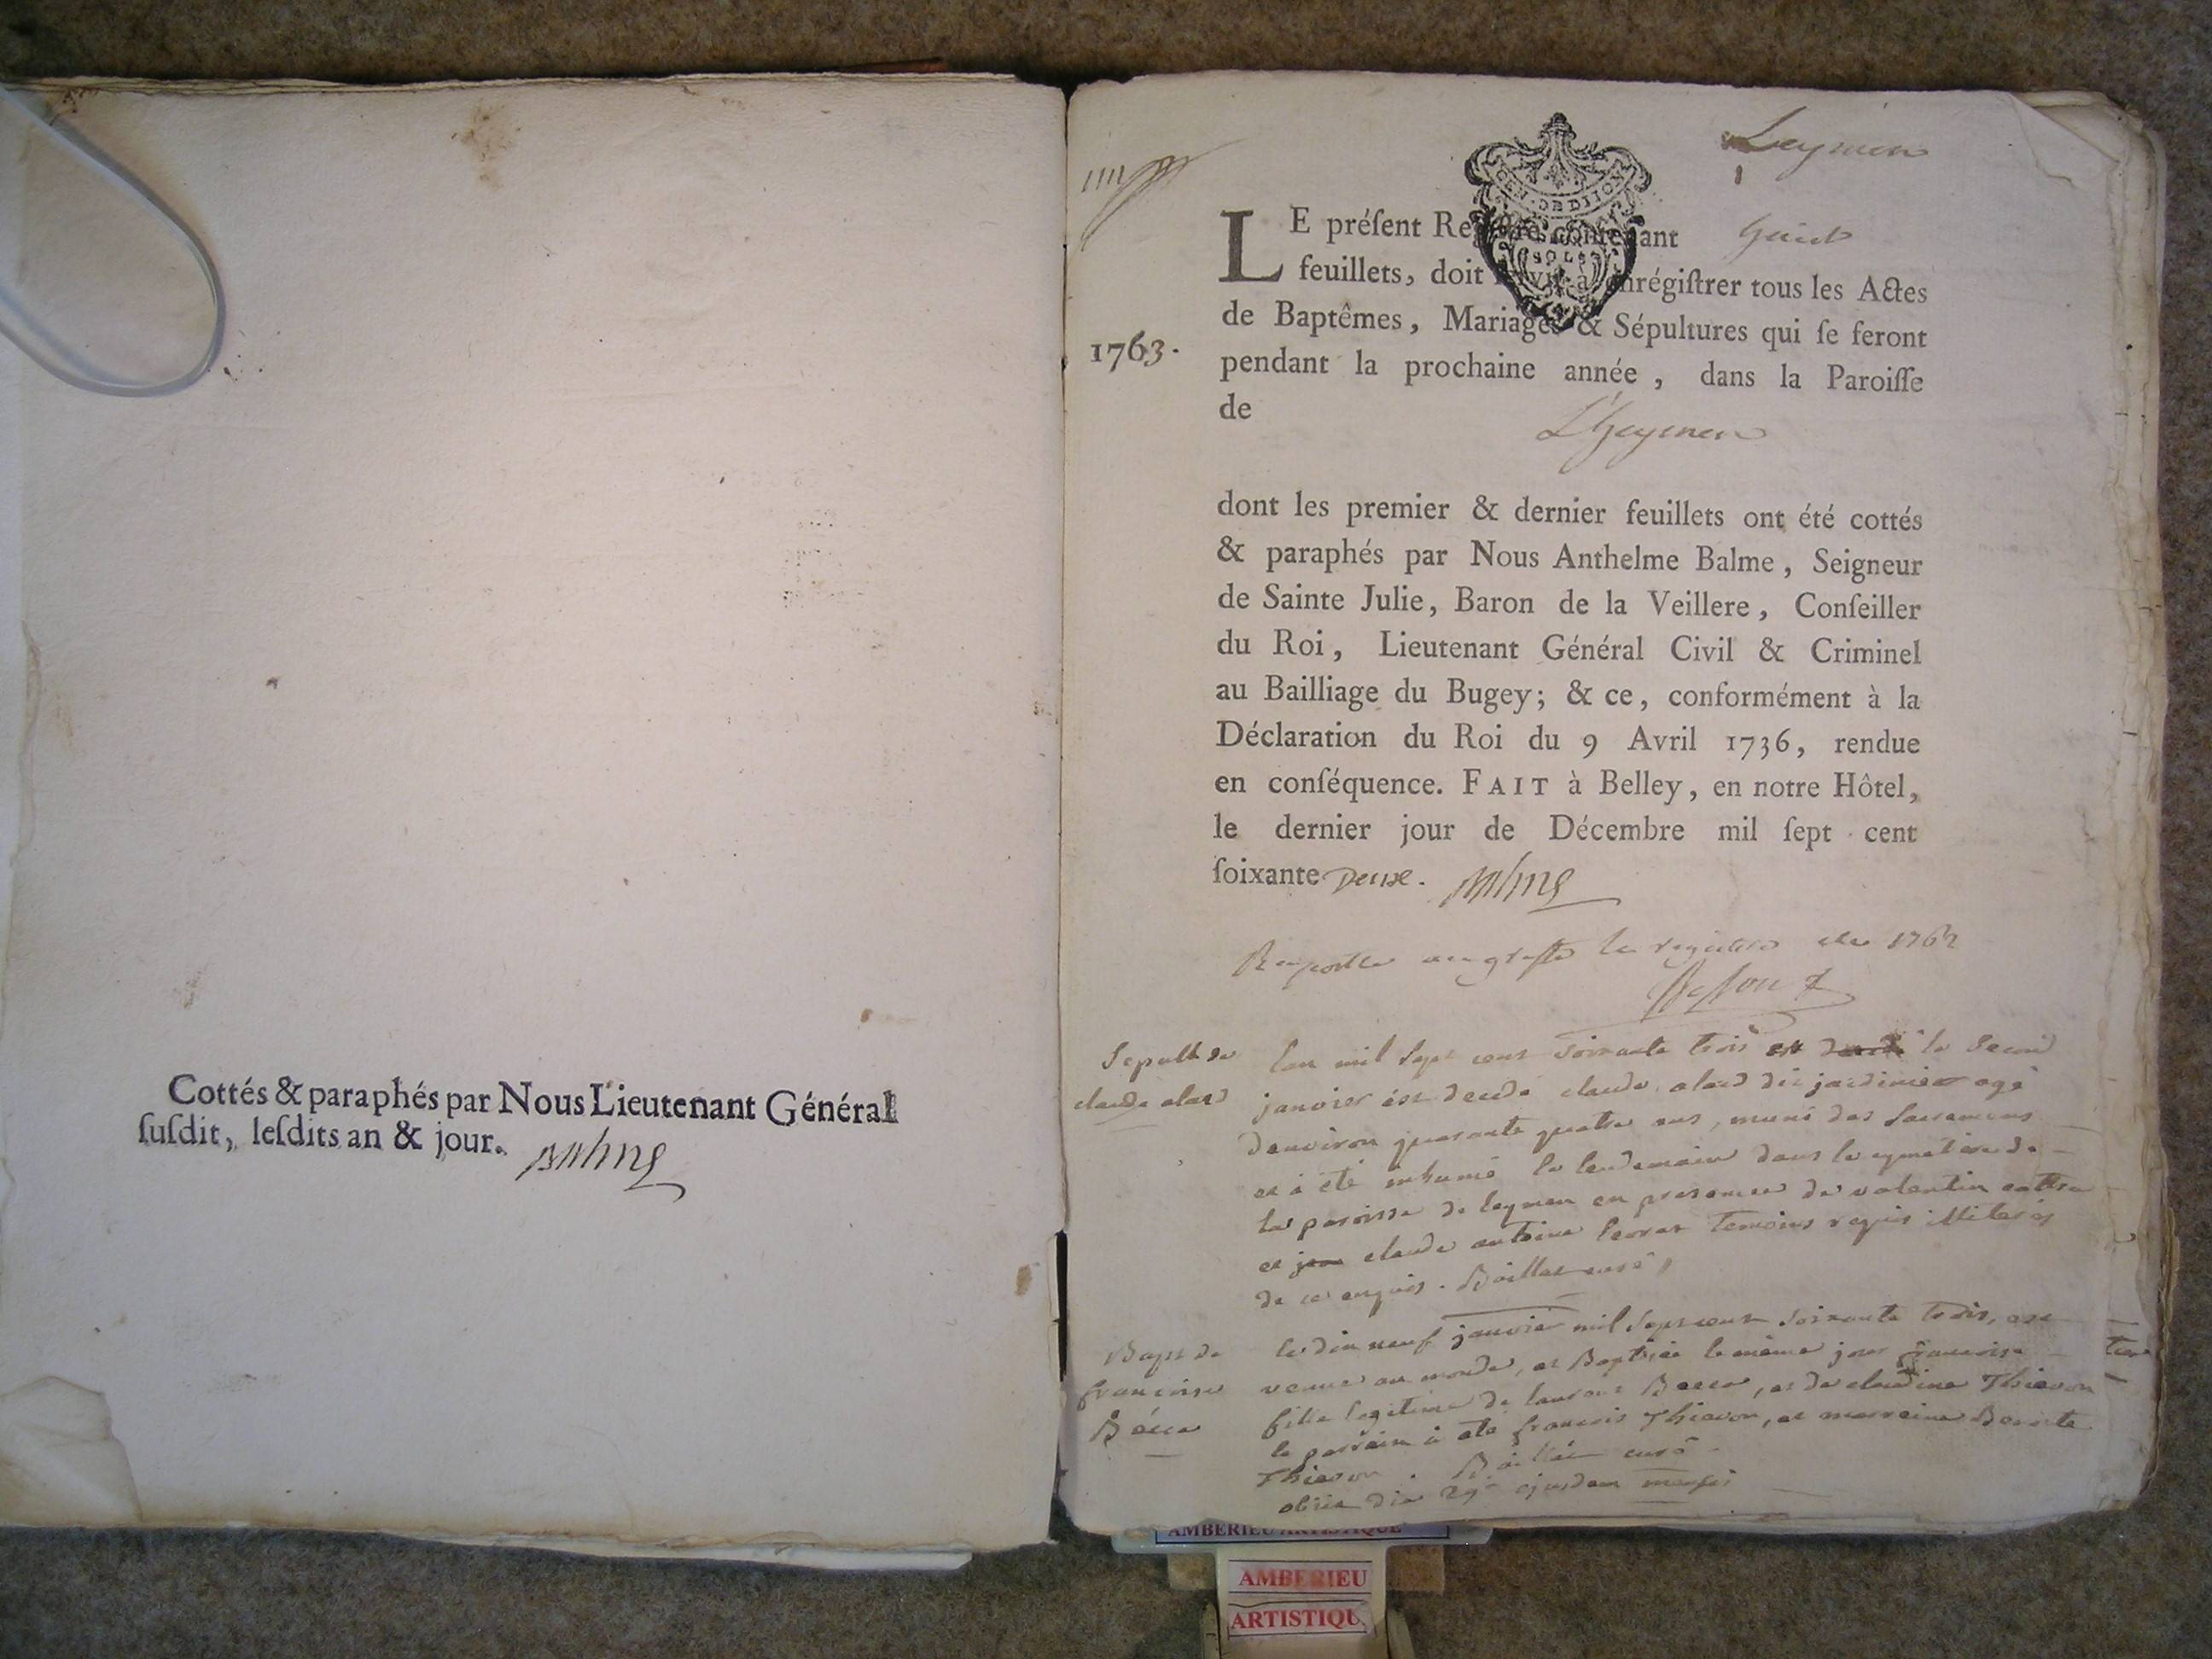 Cottés & paraphés par Nous Lieutenant Général
ſuſdit, leſdits an & jour. Balme
Leymen
1
GEN. DE DIJON
LE préſent Regiſtre contenant huit
feuillets, doit ſervir à enrégiſtrer tous les Actes
de Baptêmes, Mariages & Sépultures qui ſe feront
1763.
pendant la prochaine année, dans la Paroiſſe
de
L'heymen
dont les premier & dernier feuillets ont été cottés
& paraphés par Nous Anthelme Balme, Seigneur
de Sainte Julie, Baron de la Veillere, Conſeiller
du Roi, Lieutenant Général Civil & Criminel
au Bailliage du Bugey; & ce, conformément à la
Déclaration du Roi du 9 Avril 1736, rendue
en conſéquence. FAIT à Belley, en notre Hôtel,
le dernier jour de Décembre mil ſept cent
ſoixante Deux. Balme
Raporté au greffe le registre de 1762
Sepult de
claude alard
lan mil sept cent soixante trois le second
janvier est decede claude alard dit jardinier agé
denviron quarante quatre ans, muni des sacremens
et à été inhumé le lendemain dans le cymetiere de
la paroisse de leymen en presence de valentin
et claude antoine temoins requis illiteres
de ce enquis. curé
Bapt de
francoise
Bécca
le dix neuf janvier mil sept cent soixante trois, est
venue au monde, et Baptisée le même jour francoise
fille legitime de laurent Becca, et de claudine Thievon
le parrain à eté francois Thievon, et marraine Benoite
Thievon. curé
obiit die 29a ejusdem mensis
AMBERIEU ARTISTIQUE
AMBERIEU
ARTISTIQU